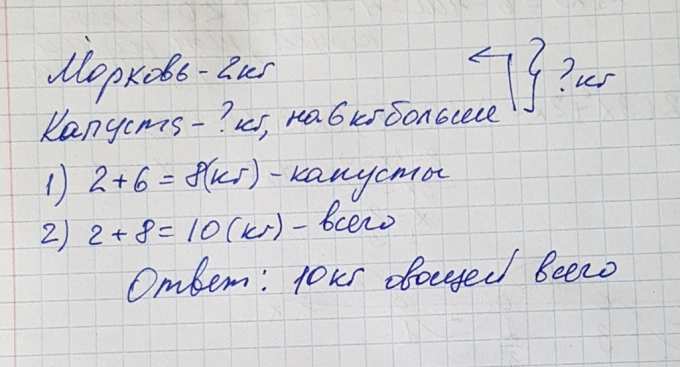 Морковь - 2 кг
Капуста - ? кг, на 6 кг больше } ? кг
1) 2 + 6 = 8 (кг) - капусты
2) 2 + 8 = 10 (кг) - всего
Ответ: 10 кг овощей всего